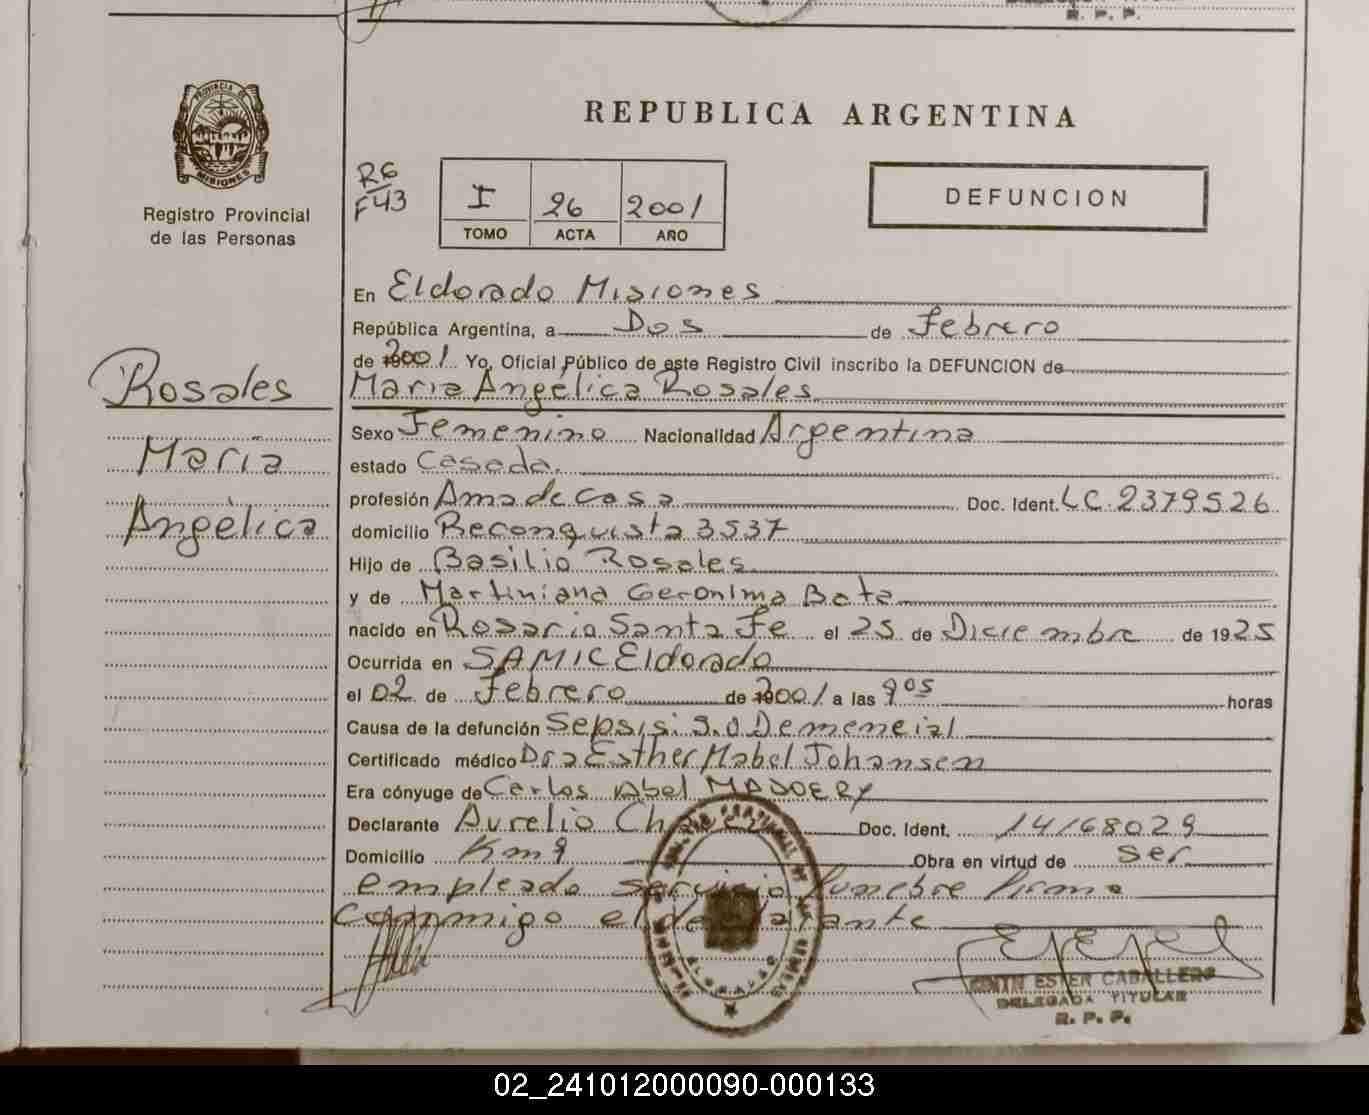 R. P. P.
PROVINCIA DE
MISIONES
Registro Provincial
de las Personas
REPUBLICA ARGENTINA
R6
F43
I 26 2001
TOMO ACTA AÑO
DEFUNCION
En Eldorado Misiones
República Argentina, a Dos de Febrero
de 2001 Yo, Oficial Público de este Registro Civil inscribo la DEFUNCION de
Maria Angélica Rosales
Rosales
María
Angèlica
Sexo Femenino Nacionalidad Argentina
estado Casada.
profesión Ama de Casa Doc. Ident. LC 2379526
domicilio Reconquista 3537
Hijo de Basilio Rosales
y de Martiniana Geronima Bota
nacido en Rosario Santa Fe el 25 de Diciembre de 1925
Ocurrida en SAMIC Eldorado
el 02 de Febrero de 2001 a las 9 05 horas
Causa de la defunción Sepsis S.O Demencial
Certificado médico Dra Esther Mabel Johansen
Era cónyuge de Carlos Abel MADOERY
Declarante Aurelio Doc. Ident. 14168029
Domicilio Km 9 Obra en virtud de ser
empleado servicio funebre firma
conmigo el declarante
ELDORADO
EDITH ESTER CABALLERO
DELEGADA TITULAR
R. P. P.
02_241012000090-000133